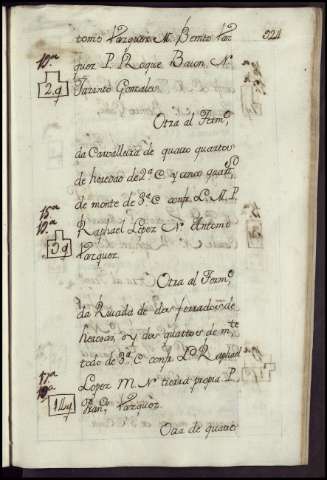 924
tonio Vazquez M. Benito Vaz
quez P. Roque Bacon N.
Jazinto Gonzalez
2.q
Otra al Term.º
da Carvalleira de quatro quartos
de heredad de 2.ª C y cinco quatt.os
de monte de 3.ª C. conf. L. M. P.
Raphael Lopez N. Antonio
Vazquez
3 q
Otra al Term.º
da Rigada de dos ferrados de
heredad, y dos quattos de m.te
de 3.ª C conf. L. Raphael
Lopez M N tierra propia P.
Fran.co Vazquez
Otra de quatro